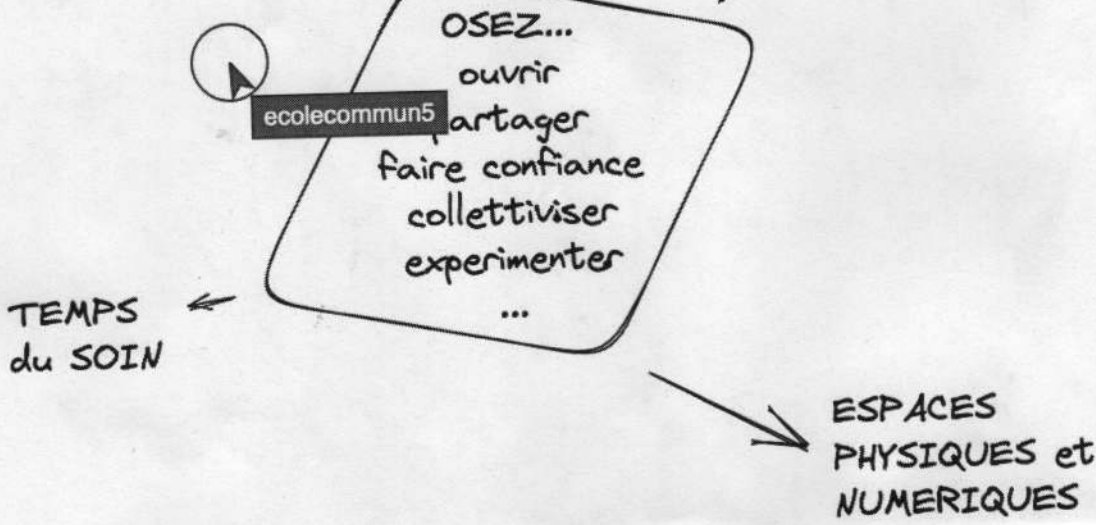 OSEZ...
ouvrir
ecolecommun5
artager
faire confiance
collettiviser
experimenter
...
TEMPS
du SOIN
ESPACES
PHYSIQUES et
NUMERIQUES